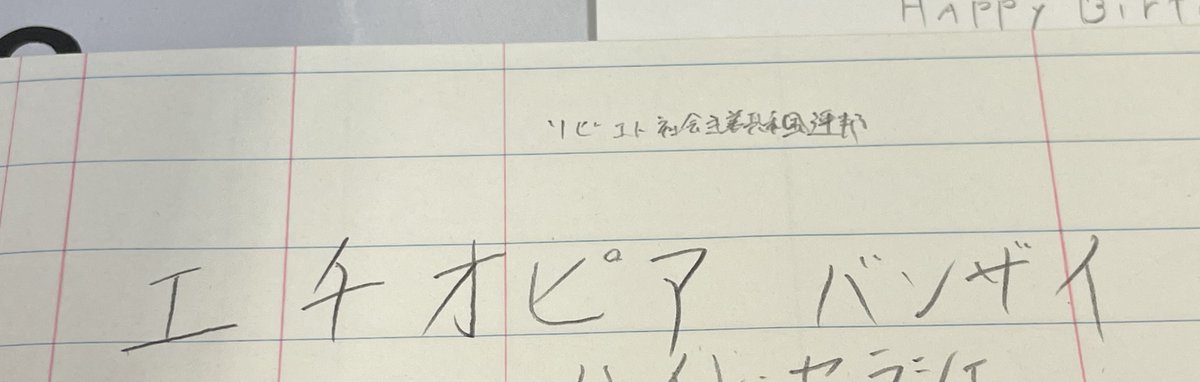 HAPPY BIRT
ソビエト社会主義共和国連邦
エチオピア バンザイ
ハイレ・セラシエ